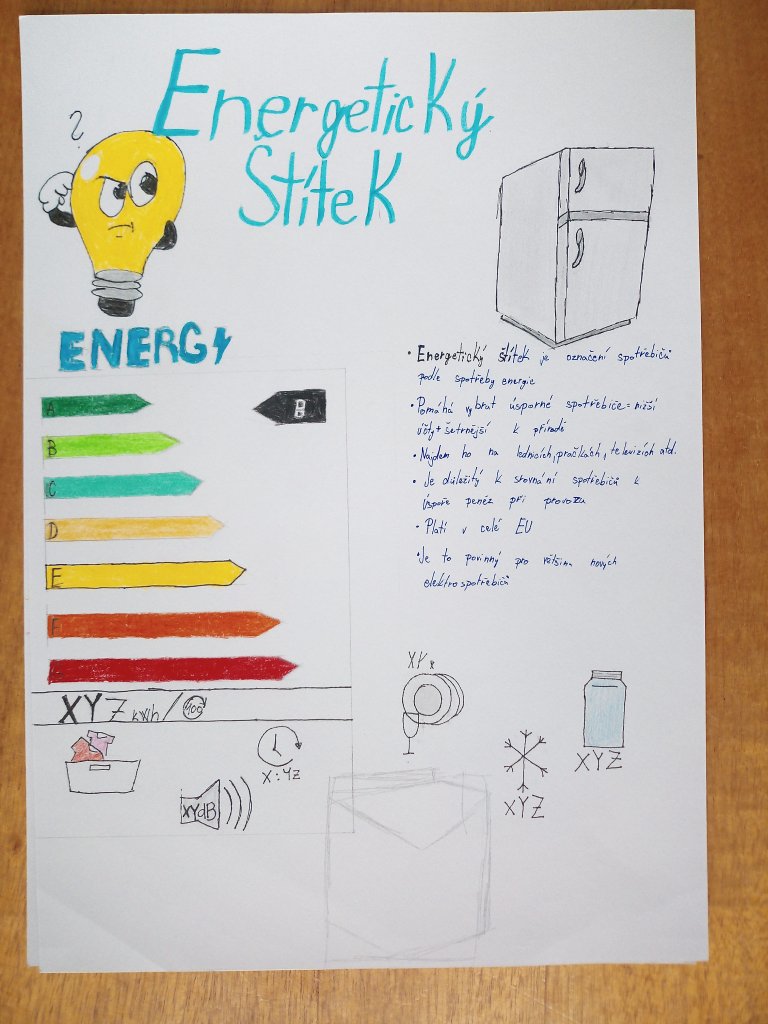 Energetický
Štítek
?
ENERG
B
A
B
C
D
E
F
• Energetický štítek je označení spotřebičů
podle spotřeby energie
• Pomáhá vybrat úsporné spotřebiče = nižší
účty + šetrnější k přírodě
• Najdem ho na lednicích, pračkách, televizích atd.
• Je důležitý k srovnání spotřebičů k
úspoře peněz při provozu
• Platí v celé EU
• Je to povinný pro většinu nových
elektrospotřebičů
XYZ kWh/100
X:YZ
XYdB
XY x
XYZ
XYZ